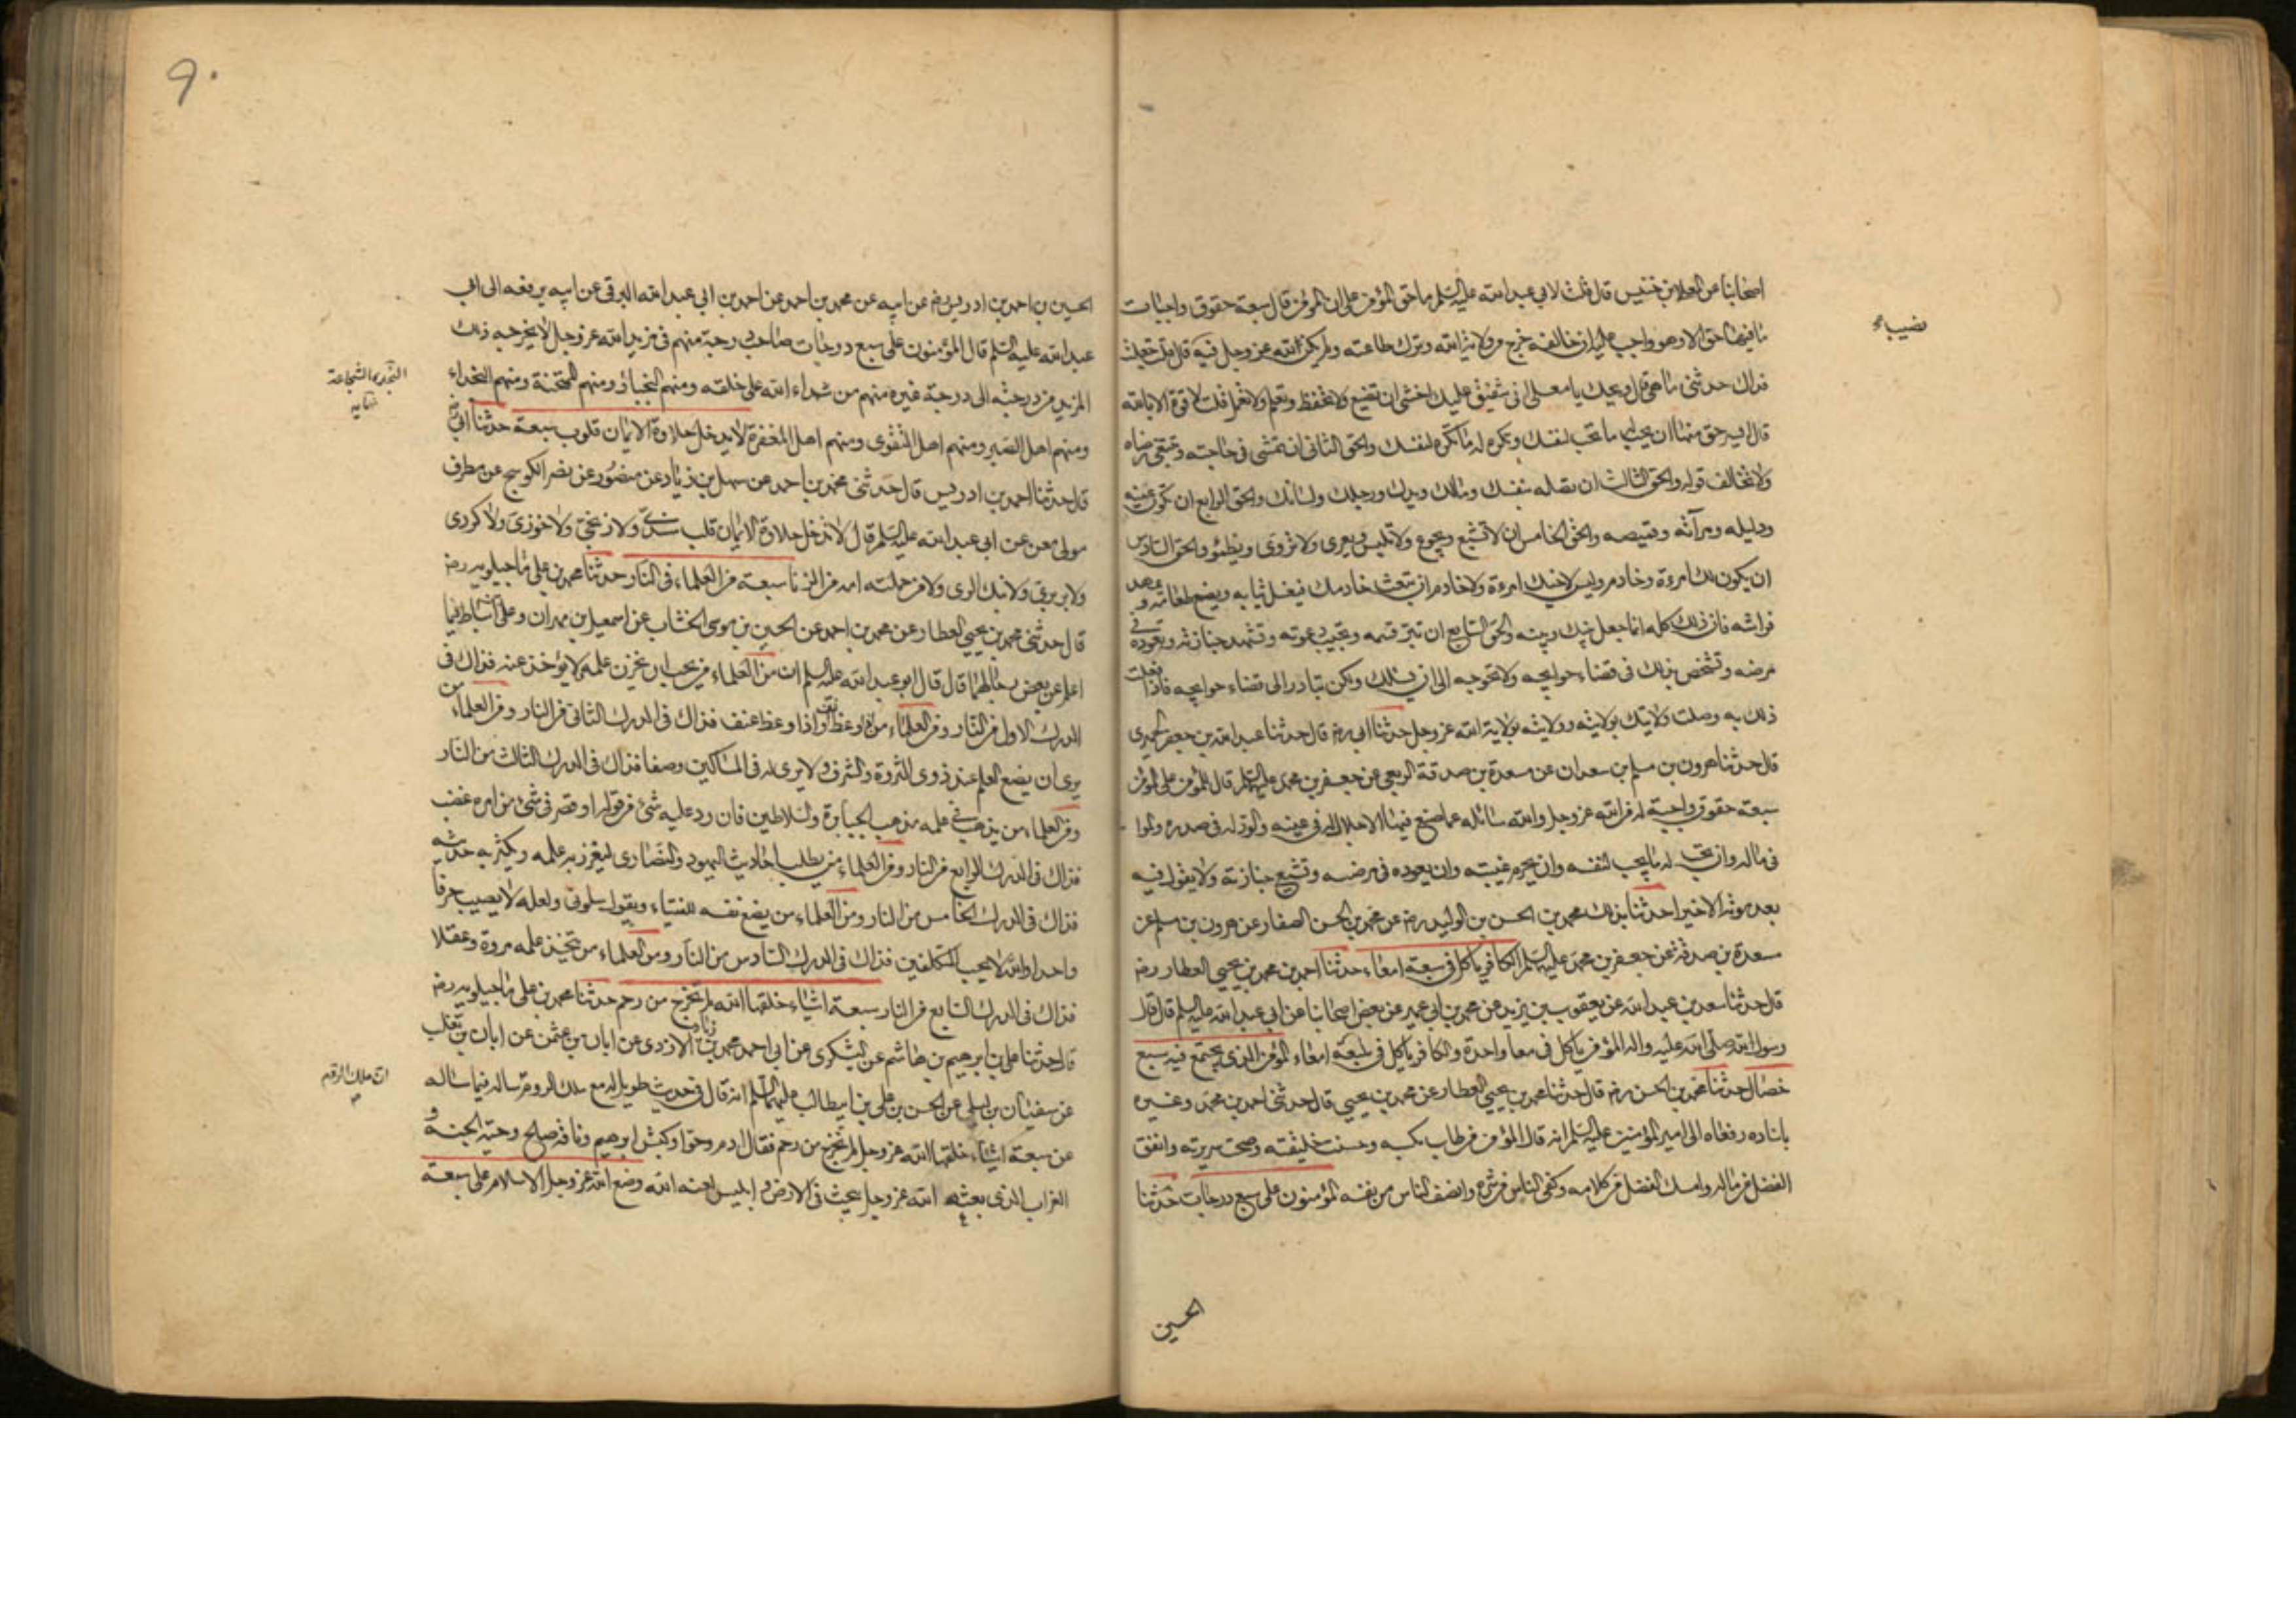 اصحابنا عن المعلى بن خنيس قال قلت لابي عبد الله عليه السلم ما حق المؤمن على المؤمن قال سبعة حقوق واجبات
ما فيها حق الا وهو واجب عليه ان خالفه خرج من ولاية الله وترك طاعته ولم يكن لله عز وجل فيه قال قلت جعلت
نصيب
فداك حدثنى ما هى قال ويحك يا معلى انى شفيق عليك اخشى ان تضيع ولا تحفظ وتعلم ولا تعمل قلت لا قوة الا بالله
قال ايسر حق منها ان تحب له ما تحب لنفسك وتكره له ما تكره لنفسك والحق الثانى ان تمشى فى حاجته وتبتغى رضاه
ولا تخالف قوله والحق الثالث ان تصله بنفسك ومالك ويدك ورجلك ولسانك والحق الرابع ان تكون عينه
ودليله ومرآته وقميصه والحق الخامس ان لا تشبع ويجوع ولا تلبس ويعرى ولا تروى ويظمؤ والحق السادس
ان يكون لك امرءة وخادم وليس لاخيك امرءة ولا خادم ان تبعث خادمك فيغسل ثيابه ويصنع طعامه و يمهد
فراشه فان ذلك كله انما جعل بينك وبينه والحق السابع ان تبر قسمه وتجيب دعوته وتشهد جنازته وتعوده فى
مرضه وتشخص بدنك فى قضاء حوايجه ولا تحوجه الى ان يسئلك ولكن تبادر الى قضاء حوايجه فاذا فعلت
ذلك به وصلت ولايتك بولايته وولايته بولاية الله عز وجل حدثنا ابى رضه قال حدثنا عبد الله بن جعفر الحميرى
قال حدثنا هرون بن مسلم بن سعدان عن مسعدة بن صدقة الربعى عن جعفر بن محمد عليه السلم قال للمؤمن على المؤمن
سبعة حقوق واجبة له من الله عز وجل والله سائله عما صنع فيها الاجلال له فى عينه والود له فى صدره والموا
فى ماله وان يحب له ما يحب لنفسه وان يحرم غيبته وان يعوده فى مرضه وتشيع جنازته ولا يقول فيه
بعد موته الا خيرا حدثنا بذلك محمد بن الحسن بن الوليد رضه عن محمد بن الحسن الصفار عن هرون بن مسلم عن
مسعدة بن صدقة عن جعفر بن محمد عليه السلم الكافر ياكل فى سبعة امعاء حدثنا احمد بن محمد بن يحيى العطار رضه
قال حدثنا سعد بن عبد الله عن يعقوب بن يزيد عن محمد بن ابى عمير عن بعض اصحابنا عن ابى عبد الله عليه السلم قال قال
رسول الله صلى الله عليه واله المؤمن ياكل فى معا واحدة والكافر ياكل فى سبعة امعاء المؤمن الذى يجتمع فيه سبع
خصال حدثنا محمد بن الحسن رضه قال حدثنا محمد بن يحيى العطار عن محمد بن يحيى قال حدثنى احمد بن محمد وغيره
باسناده رفعاه الى امير المؤمنين عليه السلم انه قال المؤمن من طاب كسبه وحسنت خليقته وصحت سريرته وانفق
الفضل من ماله وامسك الفضل من كلامه وكفى الناس من شره وانصف الناس من نفسه المؤمنون على سبع درجات حدثنا
الحسين
۹۰
الحسين بن احمد بن ادريس رضه عن ابيه عن محمد بن احمد عن احمد بن ابى عبد الله البرقى عن ابيه يرفعه الى ابى
عبد الله عليه السلم قال المؤمنون على سبع درجات صاحب درجة منهم فى مزيد من الله عز وجل لا يخرجه ذلك
المزيد من درجته الى درجة غيره منهم من شهداء الله على خلقه ومنهم النجباء ومنهم الممتحنة ومنهم النجداء
النجدة الشجاعة
نهايه
ومنهم اهل الصبر ومنهم اهل التقوى ومنهم اهل المغفرة لا يدخل حلاوة الايمان قلوب سبعة حدثنا ابى رضه
قال حدثنا احمد بن ادريس قال حدثنى محمد بن احمد عن سهل بن زياد عن منصور عن نصر الكوسج عن مطرف
مولى معن عن ابى عبد الله عليه السلم قال لا تدخل حلاوة الايمان قلب سندى ولا زنجى ولا خوزى ولا كردى
ولا بربرى ولا نبك الرى ولا من حملته امه من الزنا سبعة من العلماء فى النار حدثنا محمد بن على ماجيلويه رضه
قال حدثنى محمد بن يحيى العطار عن محمد بن احمد عن الحسين بن موسى الخشاب عن اسمعيل بن مهران وعلى بن اسباط فيما
اعلم عن بعض رجالهما قال قال ابو عبد الله عليه السلم ان من العلماء من يحب ان يخزن علمه ولا يؤخذ عنه فذاك فى
الدرك الاول من النار ومن العلماء من اذا وعظ انف واذا وعظ عنف فذاك فى الدرك الثانى من النار ومن العلماء من
يرى ان يضع العلم عند ذوى الثروة والشرف ولا يرى له فى المساكين وضعا فذاك فى الدرك الثالث من النار
ومن العلماء من يذهب فى علمه مذهب الجبابرة والسلاطين فان رد عليه شئ من قوله او قصر فى شئ من امره غضب
فذاك فى الدرك الرابع من النار ومن العلماء من يطلب احاديث اليهود والنصارى ليغزر به علمه ويكثر به حديثه
فذاك فى الدرك الخامس من النار ومن العلماء من يضع نفسه للفتياء ويقول سلونى ولعله لا يصيب حرفا
واحدا والله لا يحب المتكلفين فذاك فى الدرك السادس من النار ومن العلماء من يتخذ علمه مروة وعقلا
فذاك فى الدرك السابع من النار سبعة اشياء خلقها الله لم تخرج من رحم حدثنا محمد بن على ماجيلويه رضه
قال حدثنا على بن ابرهيم بن هاشم عن اليشكرى عن ابى احمد محمد بن زياد الازدى عن ابان بن عثمن عن ابان بن تغلب
عن سفيان بن ليلى عن الحسن بن على بن ابيطالب عليهما السلم انه قال فى حديث طويل له مع ملك الروم ان ملك الروم ساله فيما ساله
عن سبعة اشياء خلقها الله عز وجل لم تخرج من رحم فقال ادم وحوا وكبش ابرهيم وناقة صالح وحية الجنة و
الغراب الذى بعثه الله عز وجل يبحث فى الارض و ابليس لعنه الله وضع الله عز وجل الاسلام على سبعة